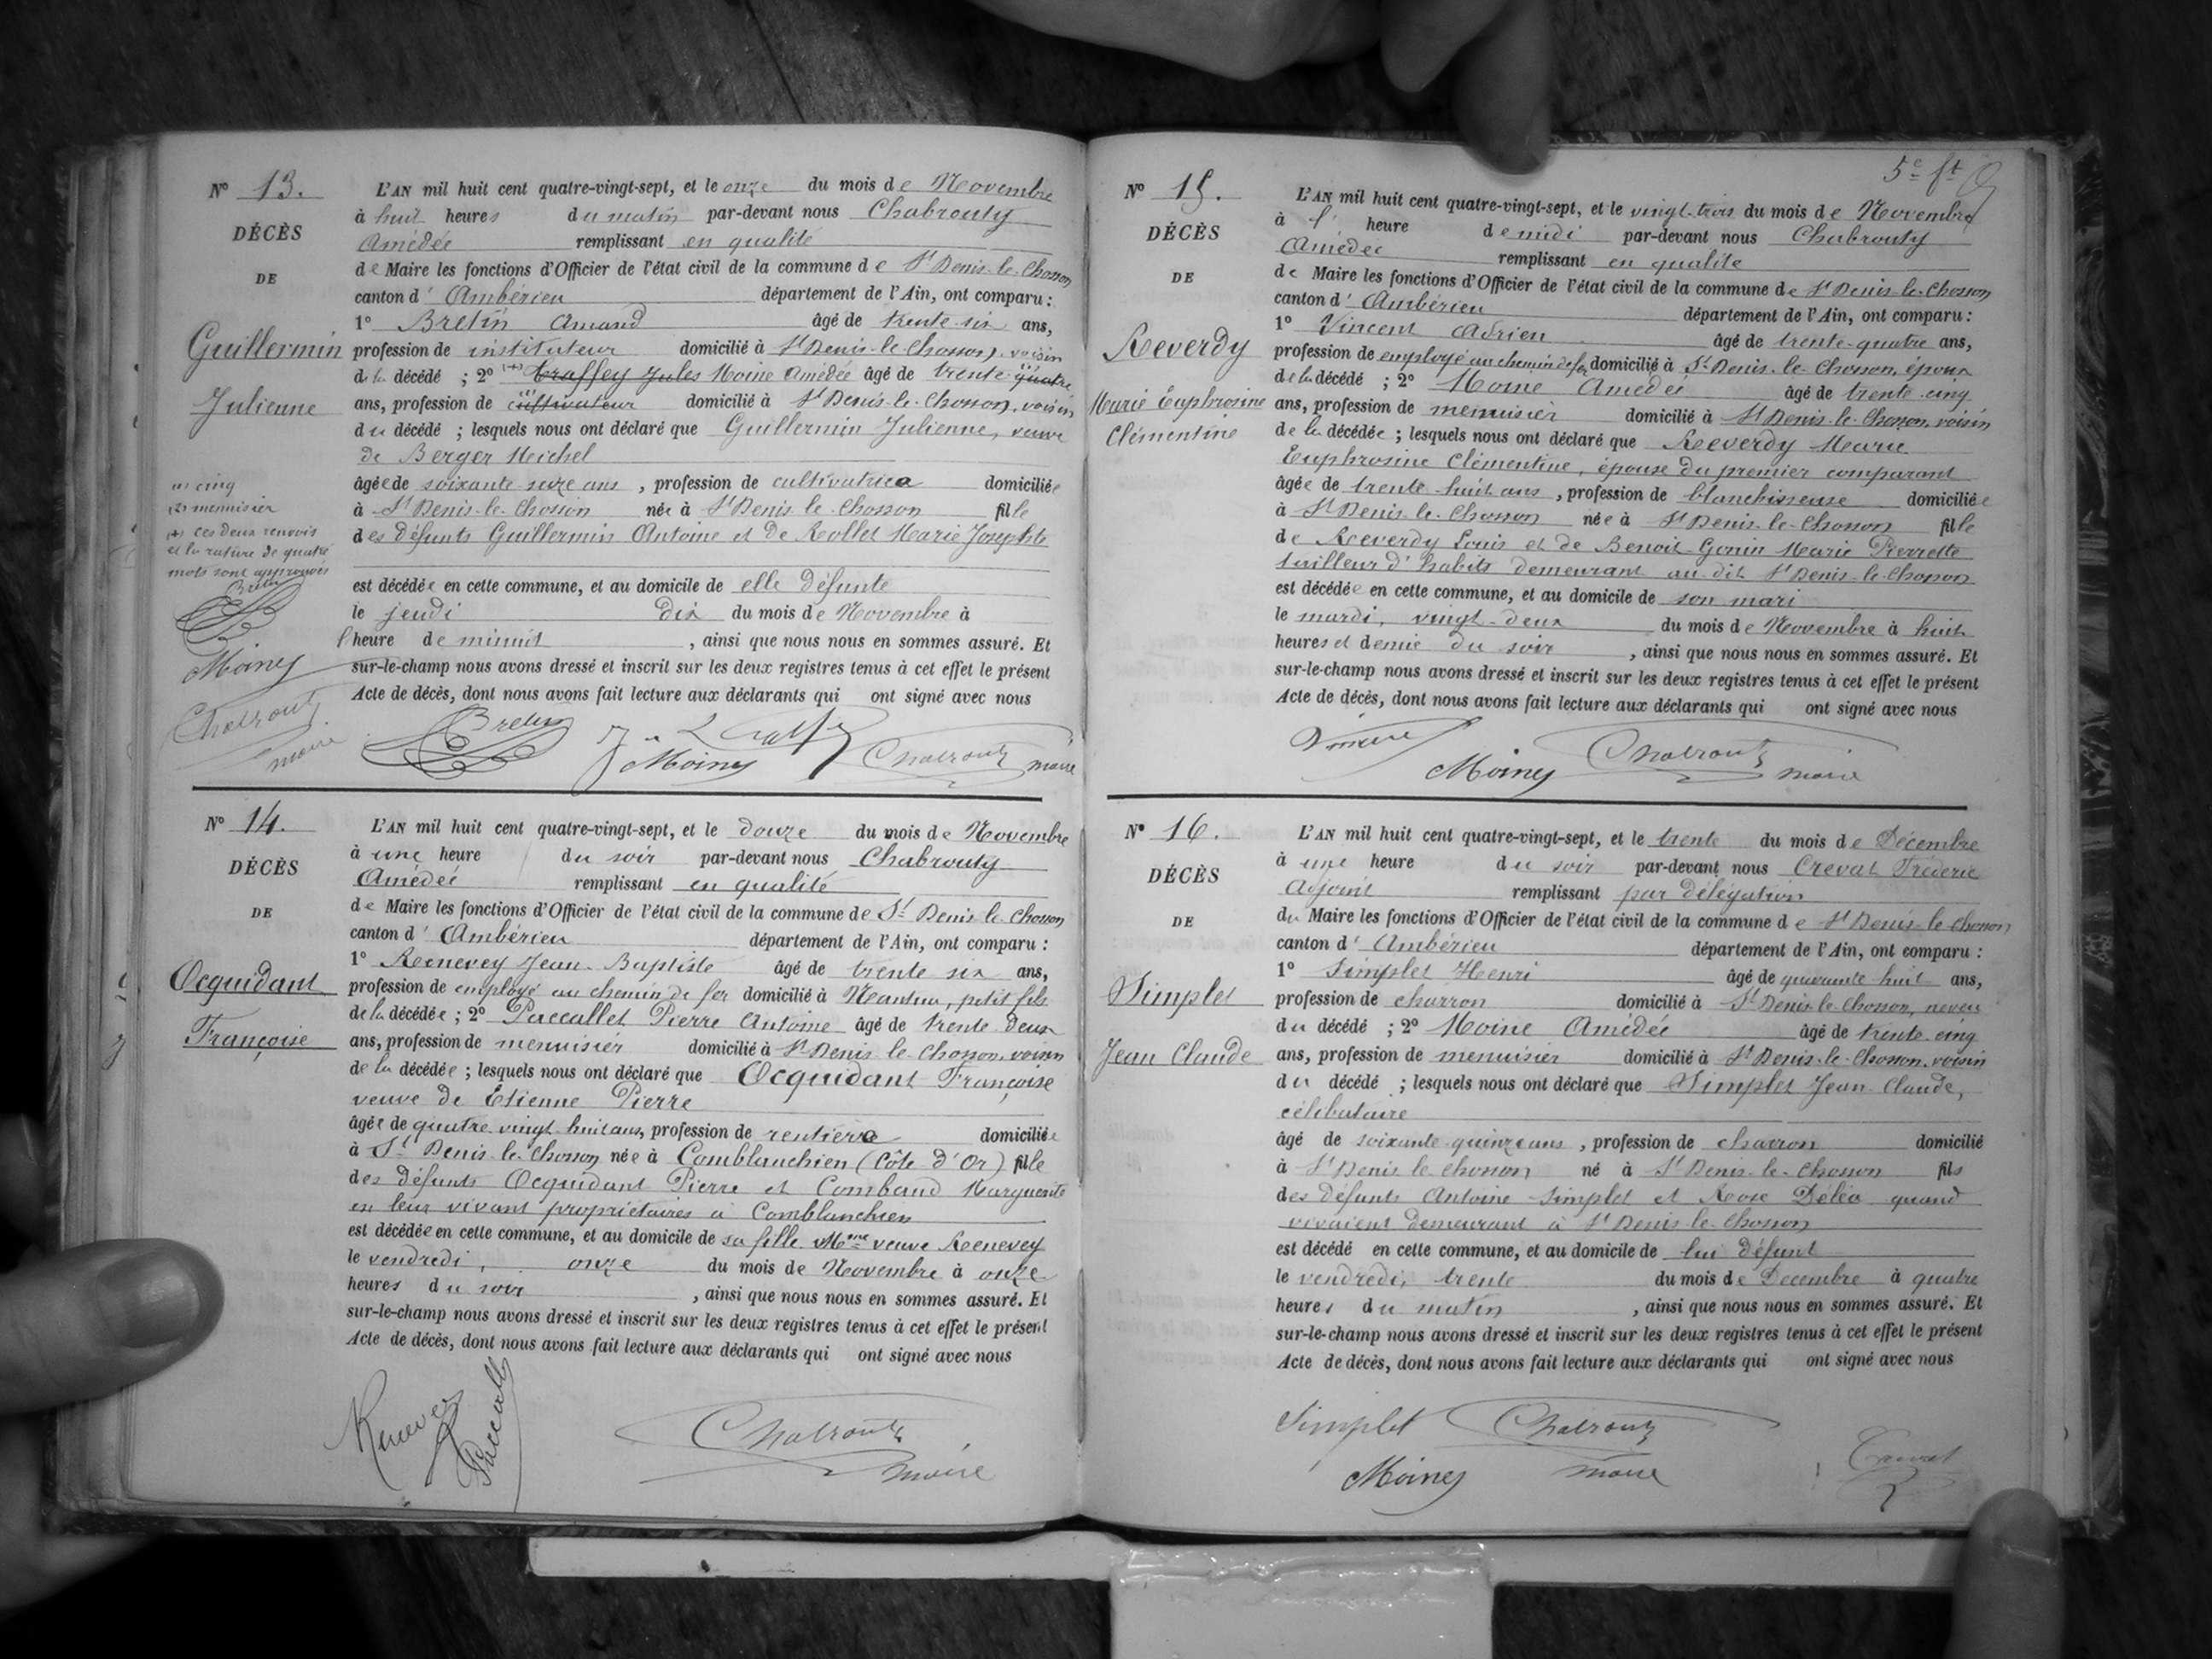 N° 13.
DÉCÈS
DE
Guillermin
Julienne
(1) cinq
(2) menuisier
(+) Ces deux renvois
et la rature de quatre
mots sont approuvés
Bretin
Moiney
Chabrouty
maire
L'AN mil huit cent quatre-vingt-sept, et le onze du mois de Novembre
à huit heures du matin par-devant nous Chabrouty
Amédée remplissant en qualité
de Maire les fonctions d'Officier de l'état civil de la commune de St Denis-le-Chosson
canton d'Ambérieu département de l'Ain, ont comparu :
1° Bretin Amand âgé de trente-six ans,
profession de instituteur domicilié à St Denis-le-Chosson, voisin
de la décédé ; 2° Traffey Jules Moine Amédée âgé de trente quatre
ans, profession de cultivateur domicilié à St Denis-le-Chosson, voisin
du décédé ; lesquels nous ont déclaré que Guillermin Julienne, veuve
de Berger Michel
âgée de soixante seize ans, profession de cultivatrice domiciliée
à St Denis-le-Chosson née à St Denis le Chosson fille
des défunts Guillermin Antoine et de Rollet Marie Josephte
est décédée en cette commune, et au domicile de elle défunte
le jeudi dix du mois de Novembre à
l'heure de minuit, ainsi que nous nous en sommes assuré. Et
sur-le-champ nous avons dressé et inscrit sur les deux registres tenus à cet effet le présent
Acte de décès, dont nous avons fait lecture aux déclarants qui ont signé avec nous
Bretin Moiney Chabrouty maire
N° 14.
DÉCÈS
DE
Ocquidant
Françoise
L'AN mil huit cent quatre-vingt-sept, et le douze du mois de Novembre
à une heure du soir par-devant nous Chabrouty
Amédée remplissant en qualité
de Maire les fonctions d'Officier de l'état civil de la commune de St Denis-le-Chosson
canton d'Ambérieu département de l'Ain, ont comparu :
1° Renevey Jean-Baptiste âgé de trente six ans,
profession de employé au chemin de fer domicilié à Nantua, petit fils
de la décédée ; 2° Paccallet Pierre Antoine âgé de trente deux
ans, profession de menuisier domicilié à St Denis-le-Chosson, voisin
de la décédée ; lesquels nous ont déclaré que Ocquidant Françoise
veuve de Etienne Pierre
âgée de quatre vingt huit ans, profession de rentière domiciliée
à St Denis-le-Chosson née à Comblanchien (Côte d'Or) fille
des défunts Ocquidant Pierre et Combaud Marguerite
en leur vivant propriétaires à Comblanchien
est décédée en cette commune, et au domicile de sa fille Mme veuve Renevey
le vendredi, onze du mois de Novembre à onze
heures du soir, ainsi que nous nous en sommes assuré. Et
sur-le-champ nous avons dressé et inscrit sur les deux registres tenus à cet effet le présent
Acte de décès, dont nous avons fait lecture aux déclarants qui ont signé avec nous
Renevey Paccallet Chabrouty
maire
5e ft
N° 15.
DÉCÈS
DE
Reverdy
Marie Euphrosine
Clémentine
L'AN mil huit cent quatre-vingt-sept, et le vingt-trois du mois de Novembre
à l'heure de midi par-devant nous Chabrouty
Amédée remplissant en qualité
de Maire les fonctions d'Officier de l'état civil de la commune de St Denis-le-Chosson
canton d'Ambérieu département de l'Ain, ont comparu :
1° Vincent Adrien âgé de trente-quatre ans,
profession de employé au chemin de fer domicilié à St Denis-le-Chosson, époux
de la décédé ; 2° Moine Amédée âgé de trente-cinq
ans, profession de menuisier domicilié à St Denis-le-Chosson, voisin
de la décédée ; lesquels nous ont déclaré que Reverdy Marie
Euphrosine Clémentine, épouse du premier comparant
âgée de trente-huit ans, profession de blanchisseuse domiciliée
à St Denis-le-Chosson née à St Denis-le-Chosson fille
de Reverdy Louis et de Benoit-Gonin Marie Pierrette
tailleur d'habits demeurant au dit St Denis-le-Chosson
est décédée en cette commune, et au domicile de son mari
le mardi, vingt-deux du mois de Novembre à huit
heures et demie du soir, ainsi que nous nous en sommes assuré. Et
sur-le-champ nous avons dressé et inscrit sur les deux registres tenus à cet effet le présent
Acte de décès, dont nous avons fait lecture aux déclarants qui ont signé avec nous
Moiney Chabrouty maire
N° 16.
DÉCÈS
DE
Simplet
Jean Claude
L'AN mil huit cent quatre-vingt-sept, et le trente du mois de Décembre
à une heure du soir par-devant nous Crevat Fréderic
Adjoint remplissant par délégation
du Maire les fonctions d'Officier de l'état civil de la commune de St Denis-le-Chosson
canton d'Ambérieu département de l'Ain, ont comparu :
1° Simplet Henri âgé de quarante huit ans,
profession de charron domicilié à St Denis-le-Chosson, neveu
du décédé ; 2° Moine Amédée âgé de trente-cinq
ans, profession de menuisier domicilié à St Denis-le-Chosson, voisin
du décédé ; lesquels nous ont déclaré que Simplet Jean Claude,
célibataire
âgé de soixante-quinze ans, profession de charron domicilié
à St Denis-le-Chosson né à St Denis-le-Chosson fils
des défunts Antoine Simplet et Rose Déléa quand
vivaient demeurant à St Denis-le-Chosson
est décédé en cette commune, et au domicile de lui défunt
le vendredi, trente du mois de Decembre à quatre
heures du matin, ainsi que nous nous en sommes assuré. Et
sur-le-champ nous avons dressé et inscrit sur les deux registres tenus à cet effet le présent
Acte de décès, dont nous avons fait lecture aux déclarants qui ont signé avec nous
Simplet Chabrouty
Moiney maire Crevat